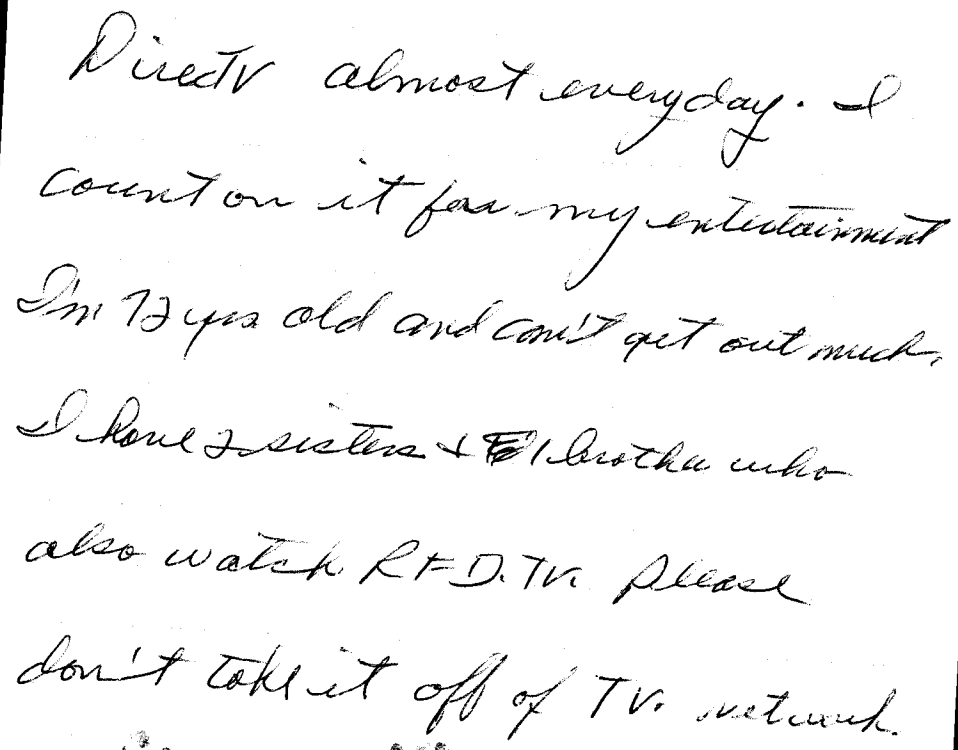 DirecTV almost everyday. I
count on it for my entertainment
I'm 72 yrs old and can't get out much.
I have 2 sisters + 1 brother who
also watch RFD.TV. Please
don't take it off of TV. network.